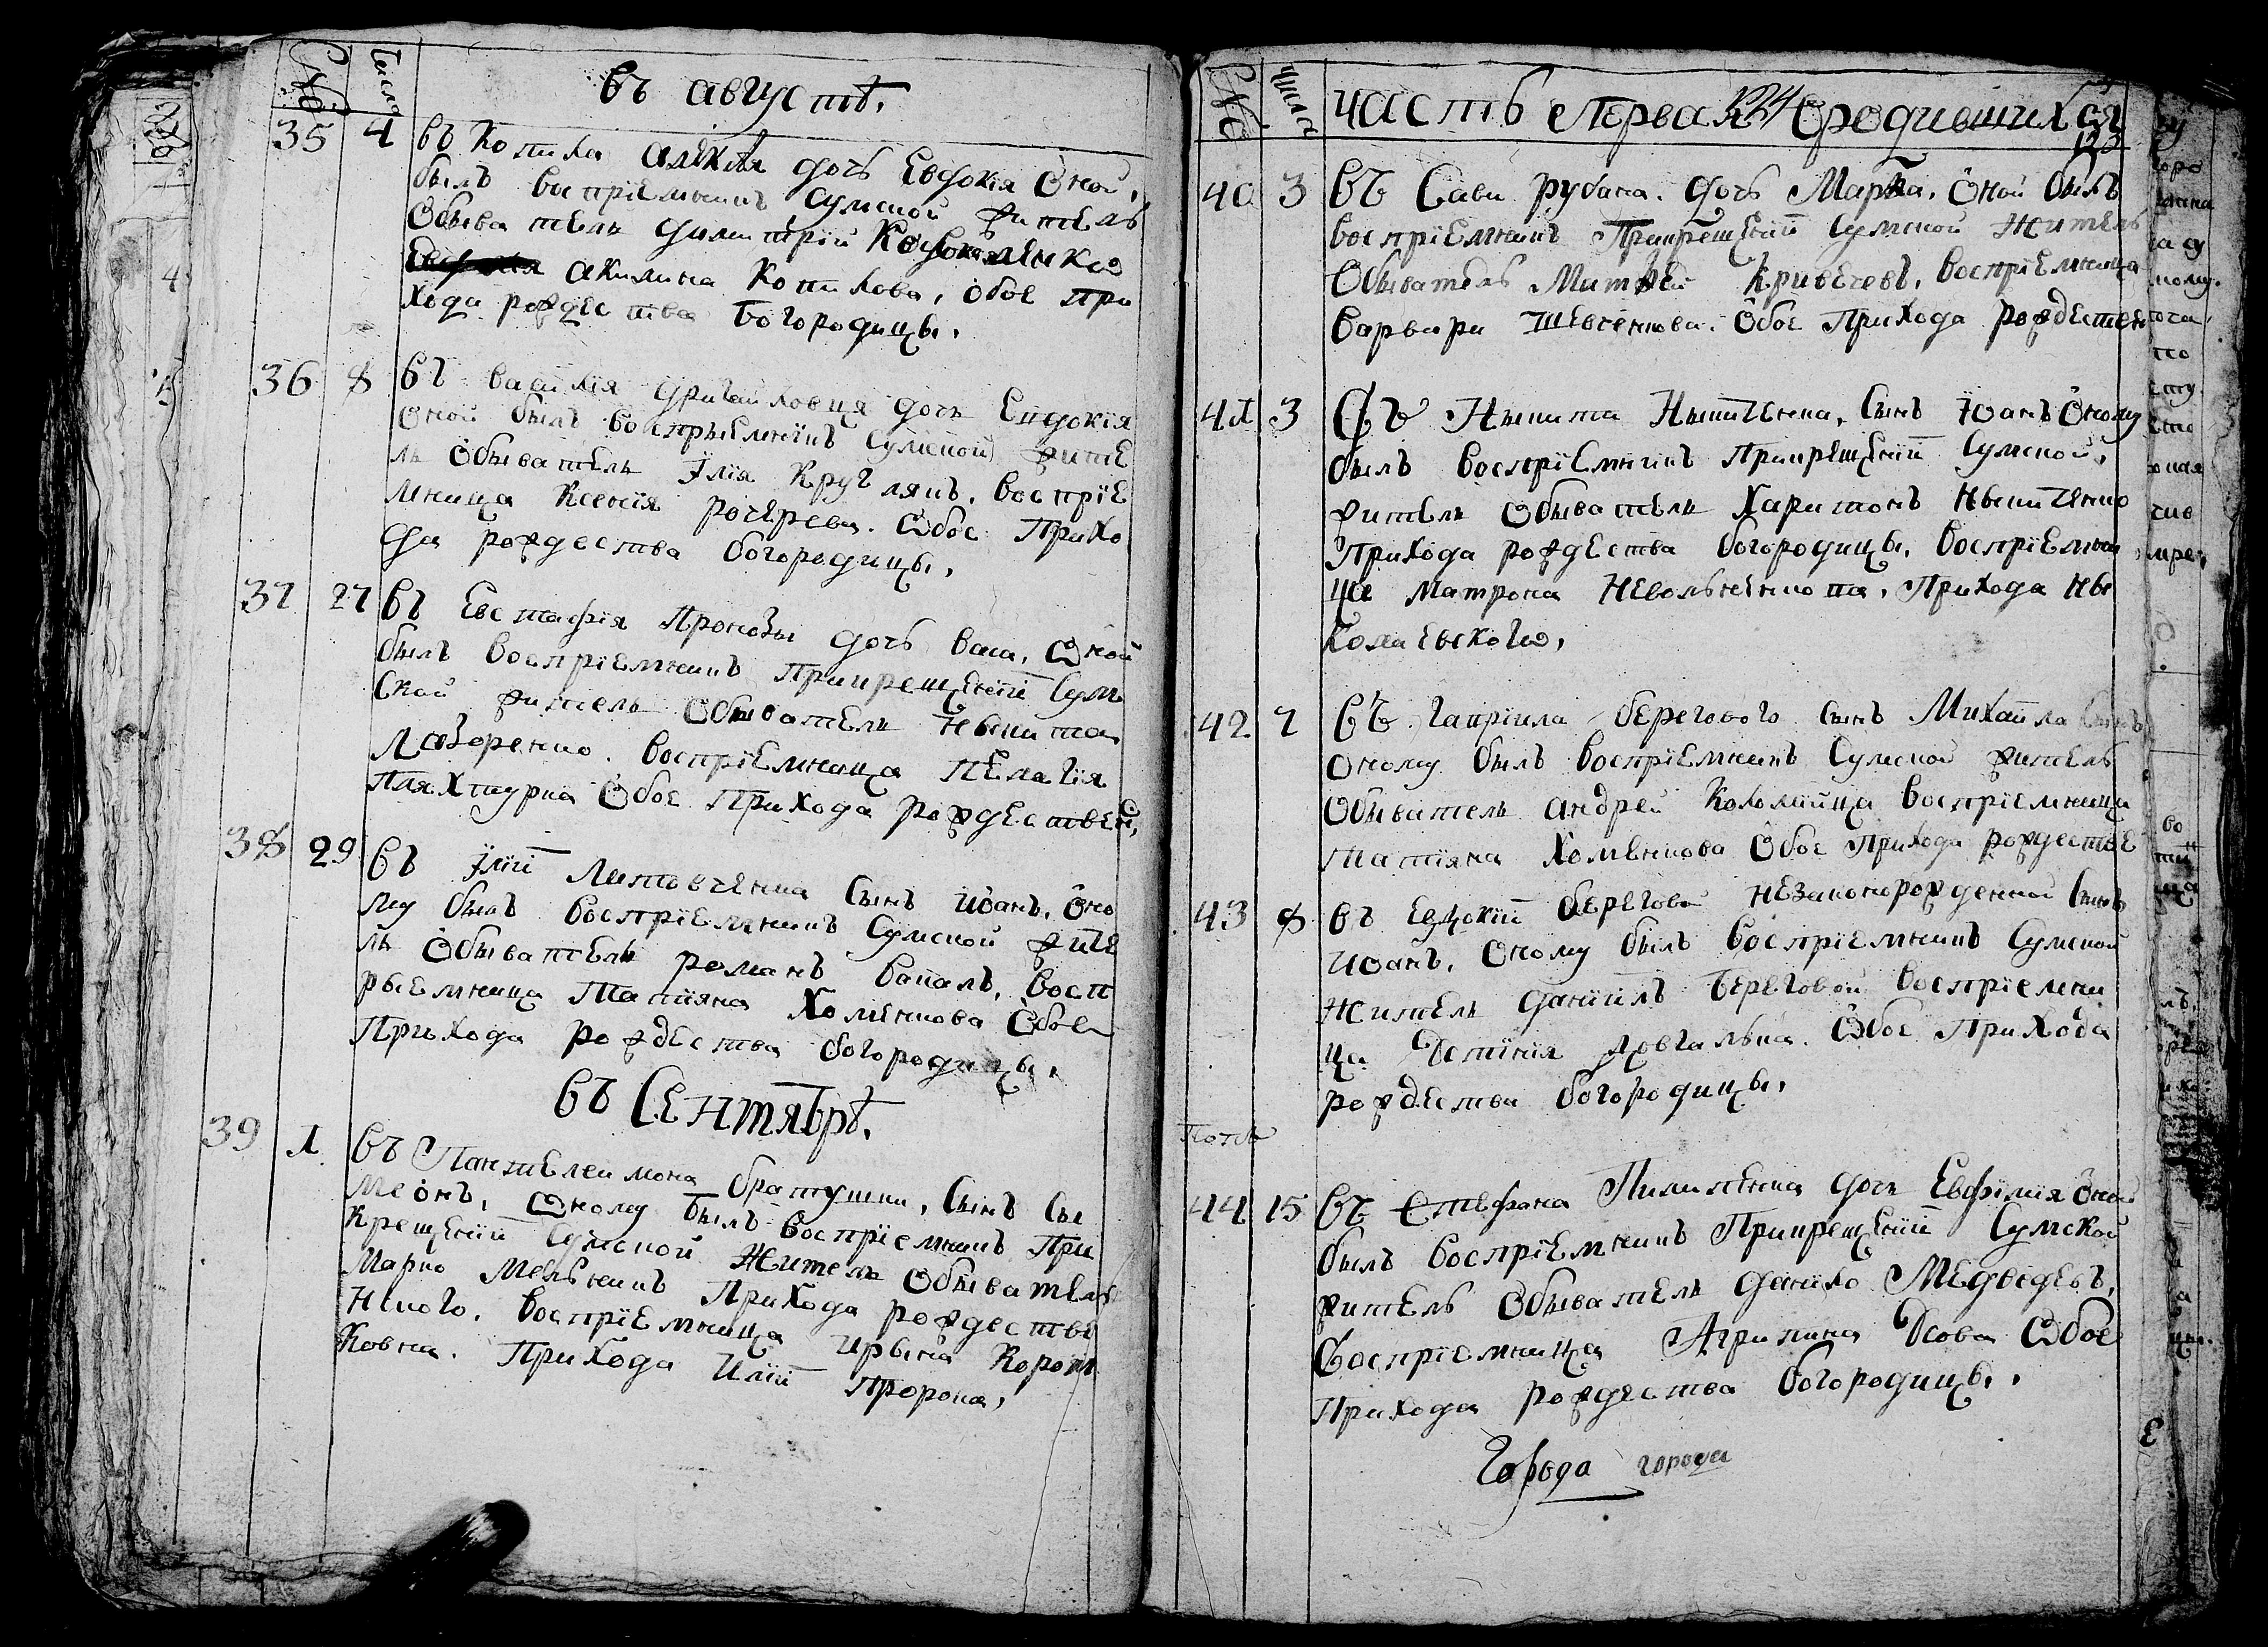 № Числа
въ августѣ.
35 4 въ Котиха дочь Евдокія Оной,
былъ воспріемникъ Сумской житель
Обыватель Димитрій
акилина Котихова, обое при
хода рождества Богородицы,
36 8 въ василія дочь Евдокія
Оной былъ воспрыемникъ Сумской жите
ль Обыватель Ілія Круглякъ, воспріе
мница Ксенія Обое Прихо
да рождества богородицы,
37 27 въ Евстафія Пронозы дочь васа, Оной
былъ воспріемникъ Прикрещеніи Сум
ской житель Обыватель Ныкита
Лазоренко. воспріемница Пелагія
Пляхтурка Обое Прихода рождествен,
38 29 въ Іліи Литовченка Сынъ иоанъ, Оно
му былъ воспріемникъ Сумской жите
ль Обыватель романъ вакалъ, восп
рыемница Татіяна Хоменкова Обое
Прихода рождества богородицы,
въ Сентябрѣ.
39 1 въ Пантелеимона братушки, Сынъ Сы
меонъ, Оному былъ воспріемникъ При
крещеніи Сумской Житель Обыватель
Марко Мельникъ Прихода рождестве
нского, воспріемница ирына Корот
ковна. Прихода Иліи Пророка,
№ числа
часть Первая 124 Ородившихся
123
40 3 въ Сави рубана. дочь Марѳа, Оной былъ
воспріемникъ Прикрещеніи Сумской Житель
Обыватель Матѳей Кривечевъ, воспріемница
варвара Шевченкова. Обое Прихода рождествен
41 3 Въ Ныкита Ныкитченка, Сынъ Іоанъ Оному
былъ воспріемникъ Прикрещеніи Сумской,
житель Обыватель Харитонъ Ныкитченко
Прихода рождества богородицы, воспріемни
ца Матрона Прихода Ны
колаевского,
42 7 въ гавріила берегового сынъ Михаила Сынъ
Оному былъ воспріемникъ Сумской житель
Обыватель андрей Коломійца воспріемница
татіяна Хоменкова Обое Прихода рождестве
43 8 въ Евдокіи береговой незаконорожденной Сынъ
иоанъ, Оному былъ воспріемникъ Сумской
житель даніилъ береговой воспріемни
ца довгалька. Обое Прихода
рождества богородицы,
44 15 въ Стефана Пилипенка дочь Евфимія Оной
былъ воспріемникъ Прикрещеніи Сумской
житель Обыватель данило Медведевъ,
воспріемница Агрипина Обое
Прихода рождества богородицы,
города города